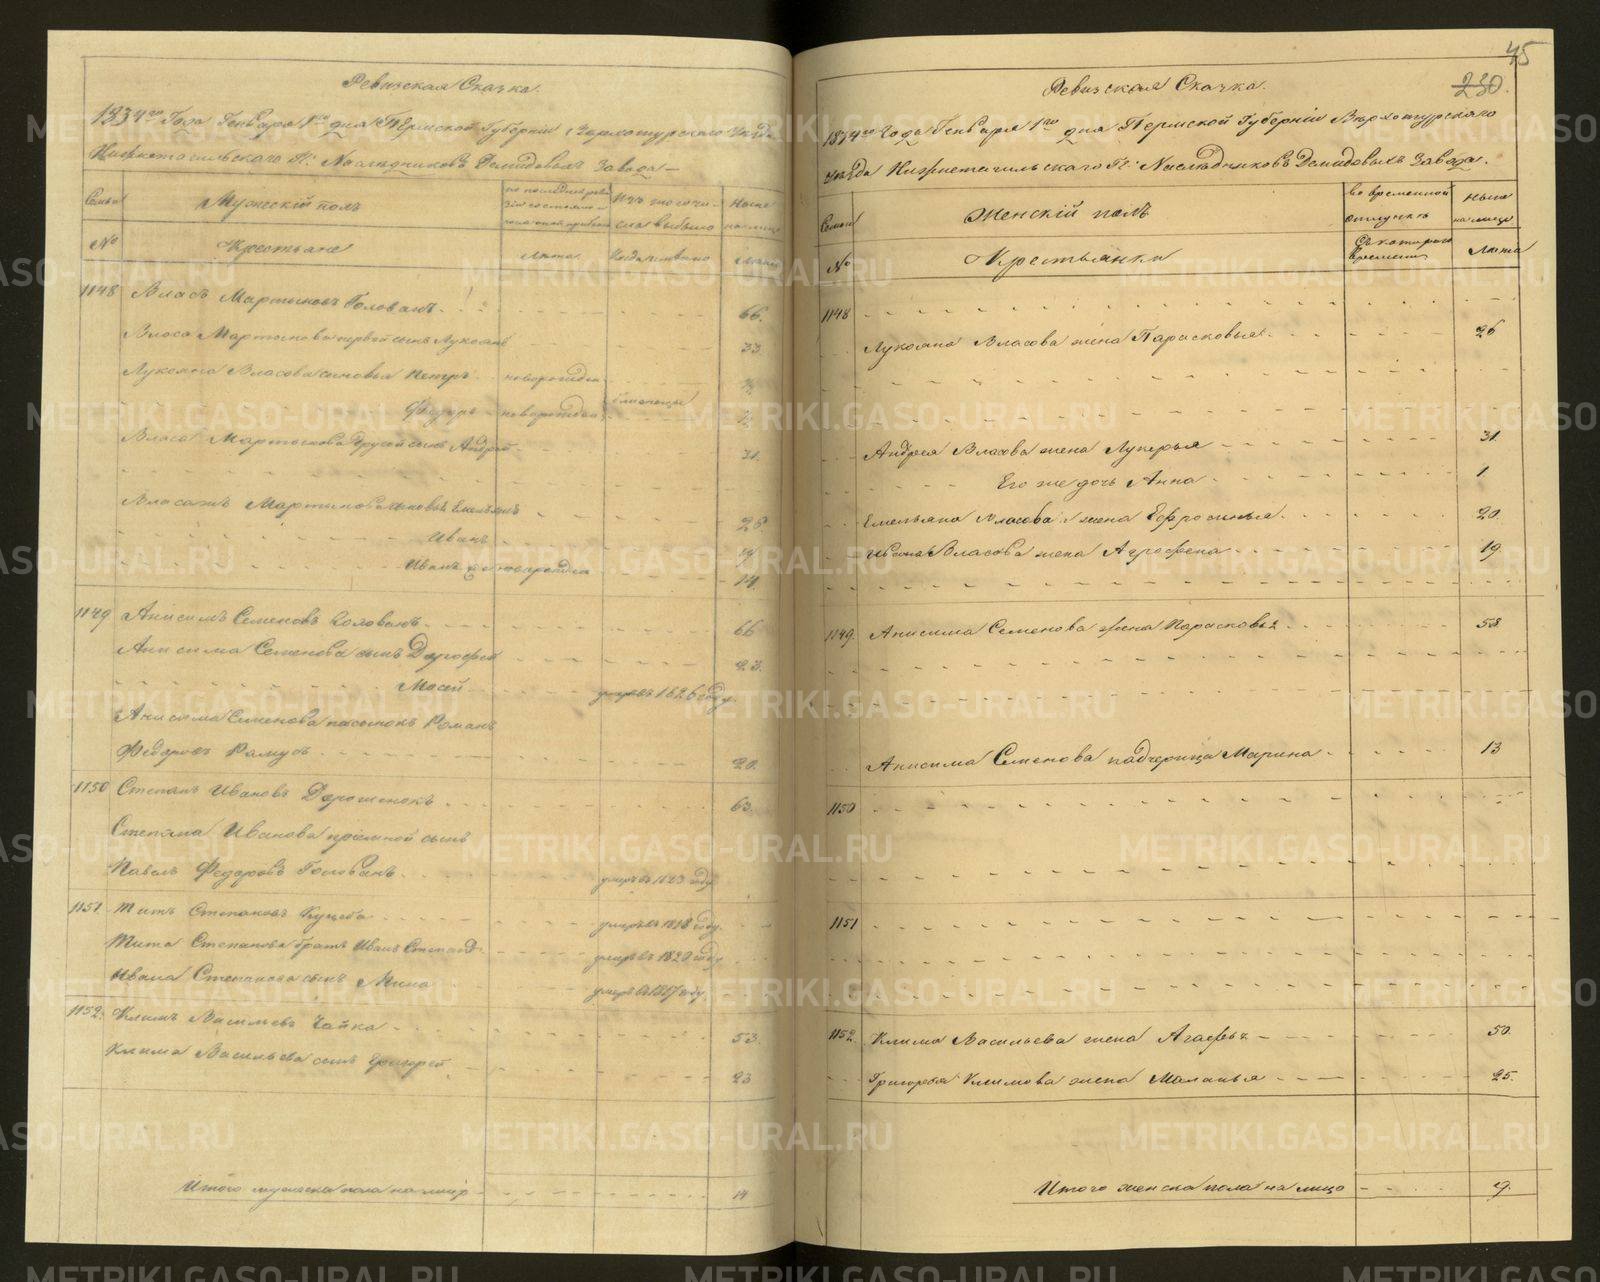 Ревизская Сказка.
1834го Года Генваря 1го дня Пермской Губернии Верхотурскаго Уезда
Нижнетагильскаго Гг: Наследниковъ Демидовыхъ Завода
Семьи
Мужескій полъ
по последней ревизіи состояло и после оной прибыло
Изъ того числа выбыло
Ныне на лице
№
Крестьяне
Лета
Когда имянно
Лета
1148 Власъ Мартыновъ Голованъ 66.
Власа Мартынова первой сынъ Лукоянъ 33
Лукояна Власова сыновья Петръ новорожден
Федоръ новорожден
Власа Мартынова другой сынъ Андрей 31.
Власажъ Мартынова сыновья Емельянъ
Иванъ
Иванъ новорожден 14
1149 Анисимъ Семеновъ Голованъ 66
Анисима Семенова сынъ Дорофей 23.
Мосей умеръ въ 1826 году
Анисима Семенова пасынокъ Романъ
Федоровъ 20.
1150 Степанъ Ивановъ Дорошенокъ 63.
Степана Иванова пріемной сынъ
Павелъ Федоровъ Голованъ умеръ въ 1823 году
1151 Титъ Степановъ Куцева умеръ въ 1818 году
Тита Степанова братъ Иванъ умеръ въ 1820 году
Ивана Степанова сынъ Мина умеръ въ 1817 году
1152. Климъ Васильевъ Чайка 53.
Клима Васильева сынъ Григорей 23
Итого мужеска пола на лицо 14
45
230.
Ревизская Сказка.
1834го Года Генваря 1го дня Пермской Губерніи Верхотурскаго
Уезда Нижнетагильскаго Гг: Наследниковъ Демидовыхъ Завода.
Семьи
Женскій полъ
во временной отлучке
Ныне на лице
№
Крестьянки
Съ котораго времени
Лета
1148
Лукояна Власова жена Парасковья 26
Андрея Власова жена Лукерья 31.
Его же дочь Анна 1
Емельяна Власова жена Ефросинья 20.
Ивана Власова жена Аграфена 19.
1149. Анисима Семенова жена Парасковья 58
Анисима Семенова падчерица Марина 13
1150
1151
1152. Клима Васильева жена Агафья 50.
Григорья Климова жена Маланья 25.
Итого женска пола на лицо 9.
METRIKI.GASO-URAL.RU